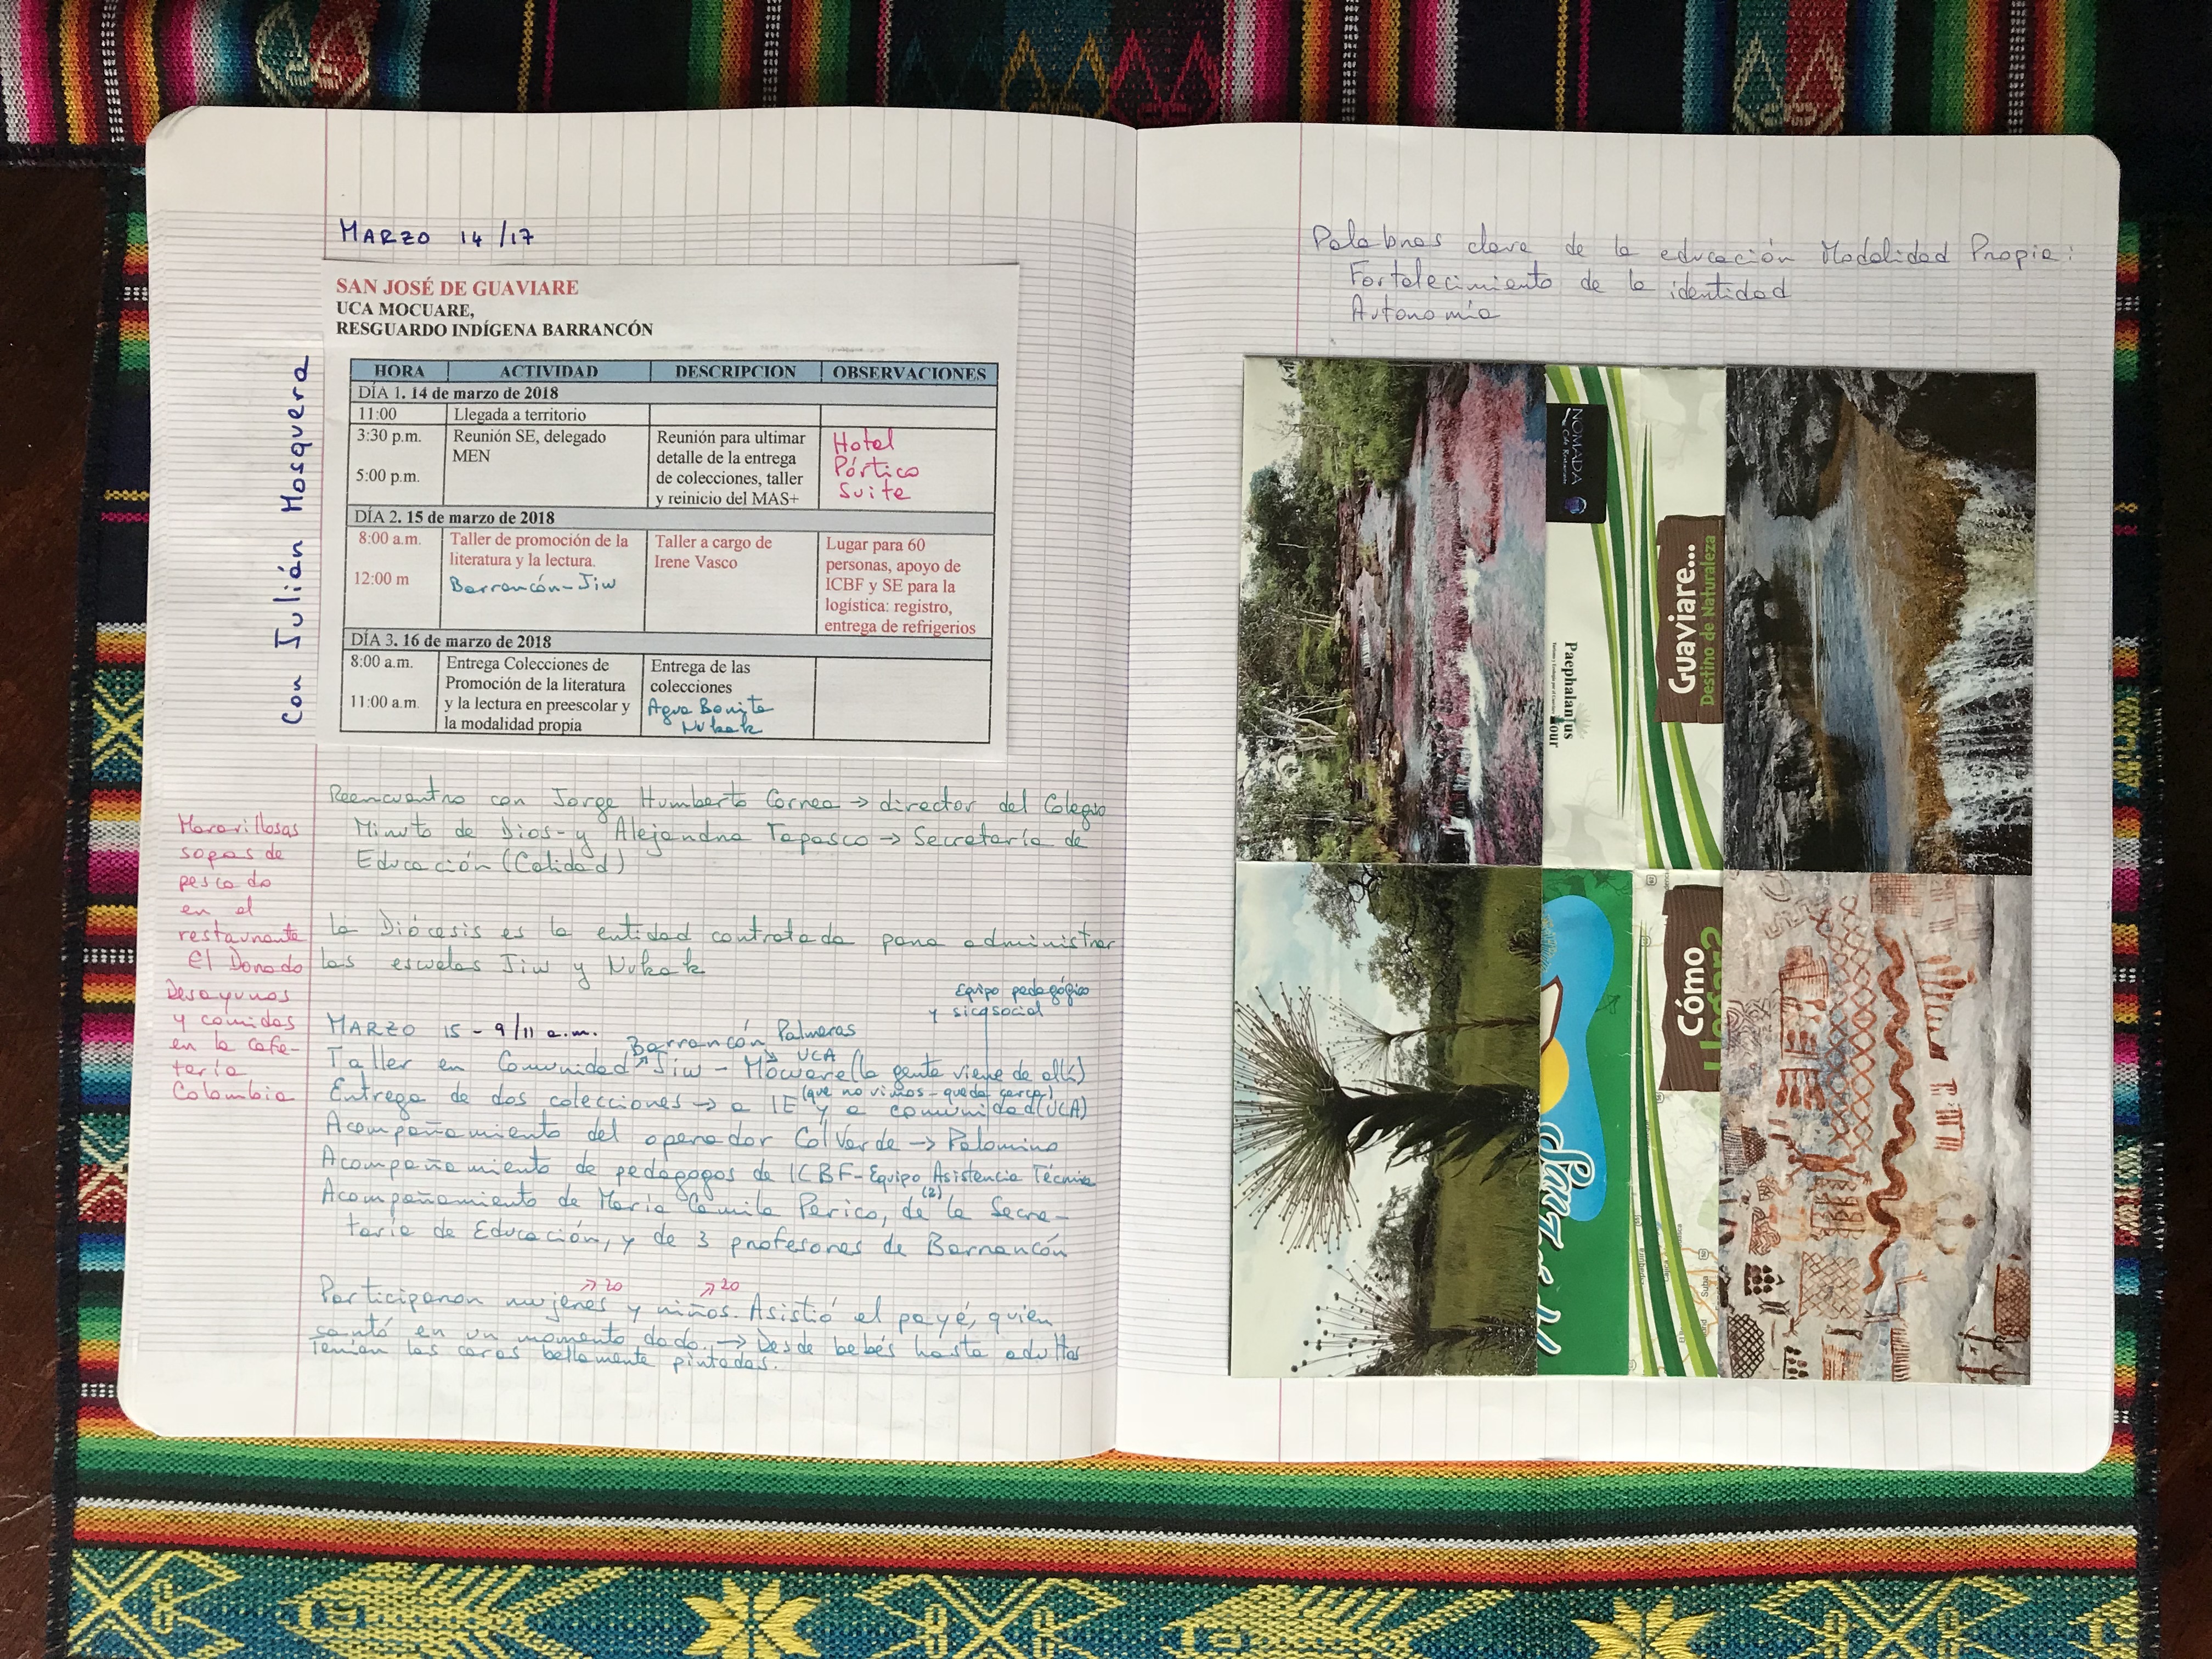 MARZO 14/17
Con Julián Mosquera
SAN JOSÉ DE GUAVIARE
UCA MOCUARE,
RESGUARDO INDÍGENA BARRANCÓN
HORA ACTIVIDAD DESCRIPCION OBSERVACIONES
DÍA 1. 14 de marzo de 2018
11:00 Llegada a territorio
3:30 p.m. Reunión SE, delegado Reunión para ultimar Hotel
MEN detalle de la entrega Pórtico
5:00 p.m. de colecciones, taller Suite
y reinicio del MAS+
DÍA 2. 15 de marzo de 2018
8:00 a.m. Taller de promoción de la Taller a cargo de Lugar para 60
literatura y la lectura. Irene Vasco personas, apoyo de
12:00 m Barrancón-Jiw ICBF y SE para la
logística: registro,
entrega de refrigerios
DÍA 3. 16 de marzo de 2018
8:00 a.m. Entrega Colecciones de Entrega de las
Promoción de la literatura colecciones
11:00 a.m. y la lectura en preescolar y Agua Bonita
la modalidad propia Nukak
Reencuentro con Jorge Humberto Correa → director del Colegio
Minuto de Dios- y Alejandra Tapasco → Secretaría de
Educación (Calidad)
Maravillosas
sopas de
pescado
en el
restaurante
El Dorado
Desayunos
y comidas
en la cafe-
tería
Colombia
La Diócesis es la entidad contratada para administrar
las escuelas Jiw y Nukak
Equipo pedagógico
y sicosocial
MARZO 15 - 9/11 a.m.
Barrancón Palmeras
UCA
Taller en Comunidad Jiw - Mocuare (la gente viene de allá)
(que no vimos - queda cerca)
Entrega de dos colecciones → a IE y a comunidad (UCA)
Acompañamiento del operador ColVerde → Palomino
Acompañamiento de pedagogos de ICBF-Equipo Asistencia Técnica
Acompañamiento de María Camila Perico, de (2) la Secre-
taría de Educación, y de 3 profesores de Barrancón
↗20 ↗20
Participaron mujeres y niños. Asistió el payé, quien
cantó en un momento dado. → Desde bebés hasta adultos
tenían las caras bellamente pintadas.
Palabras clave de la educación Modalidad Propia:
Fortalecimiento de la identidad
Autonomía
NOMADA
Café Restaurante
Paephalantus
Tour
Guaviare...
Destino de Naturaleza
Cómo